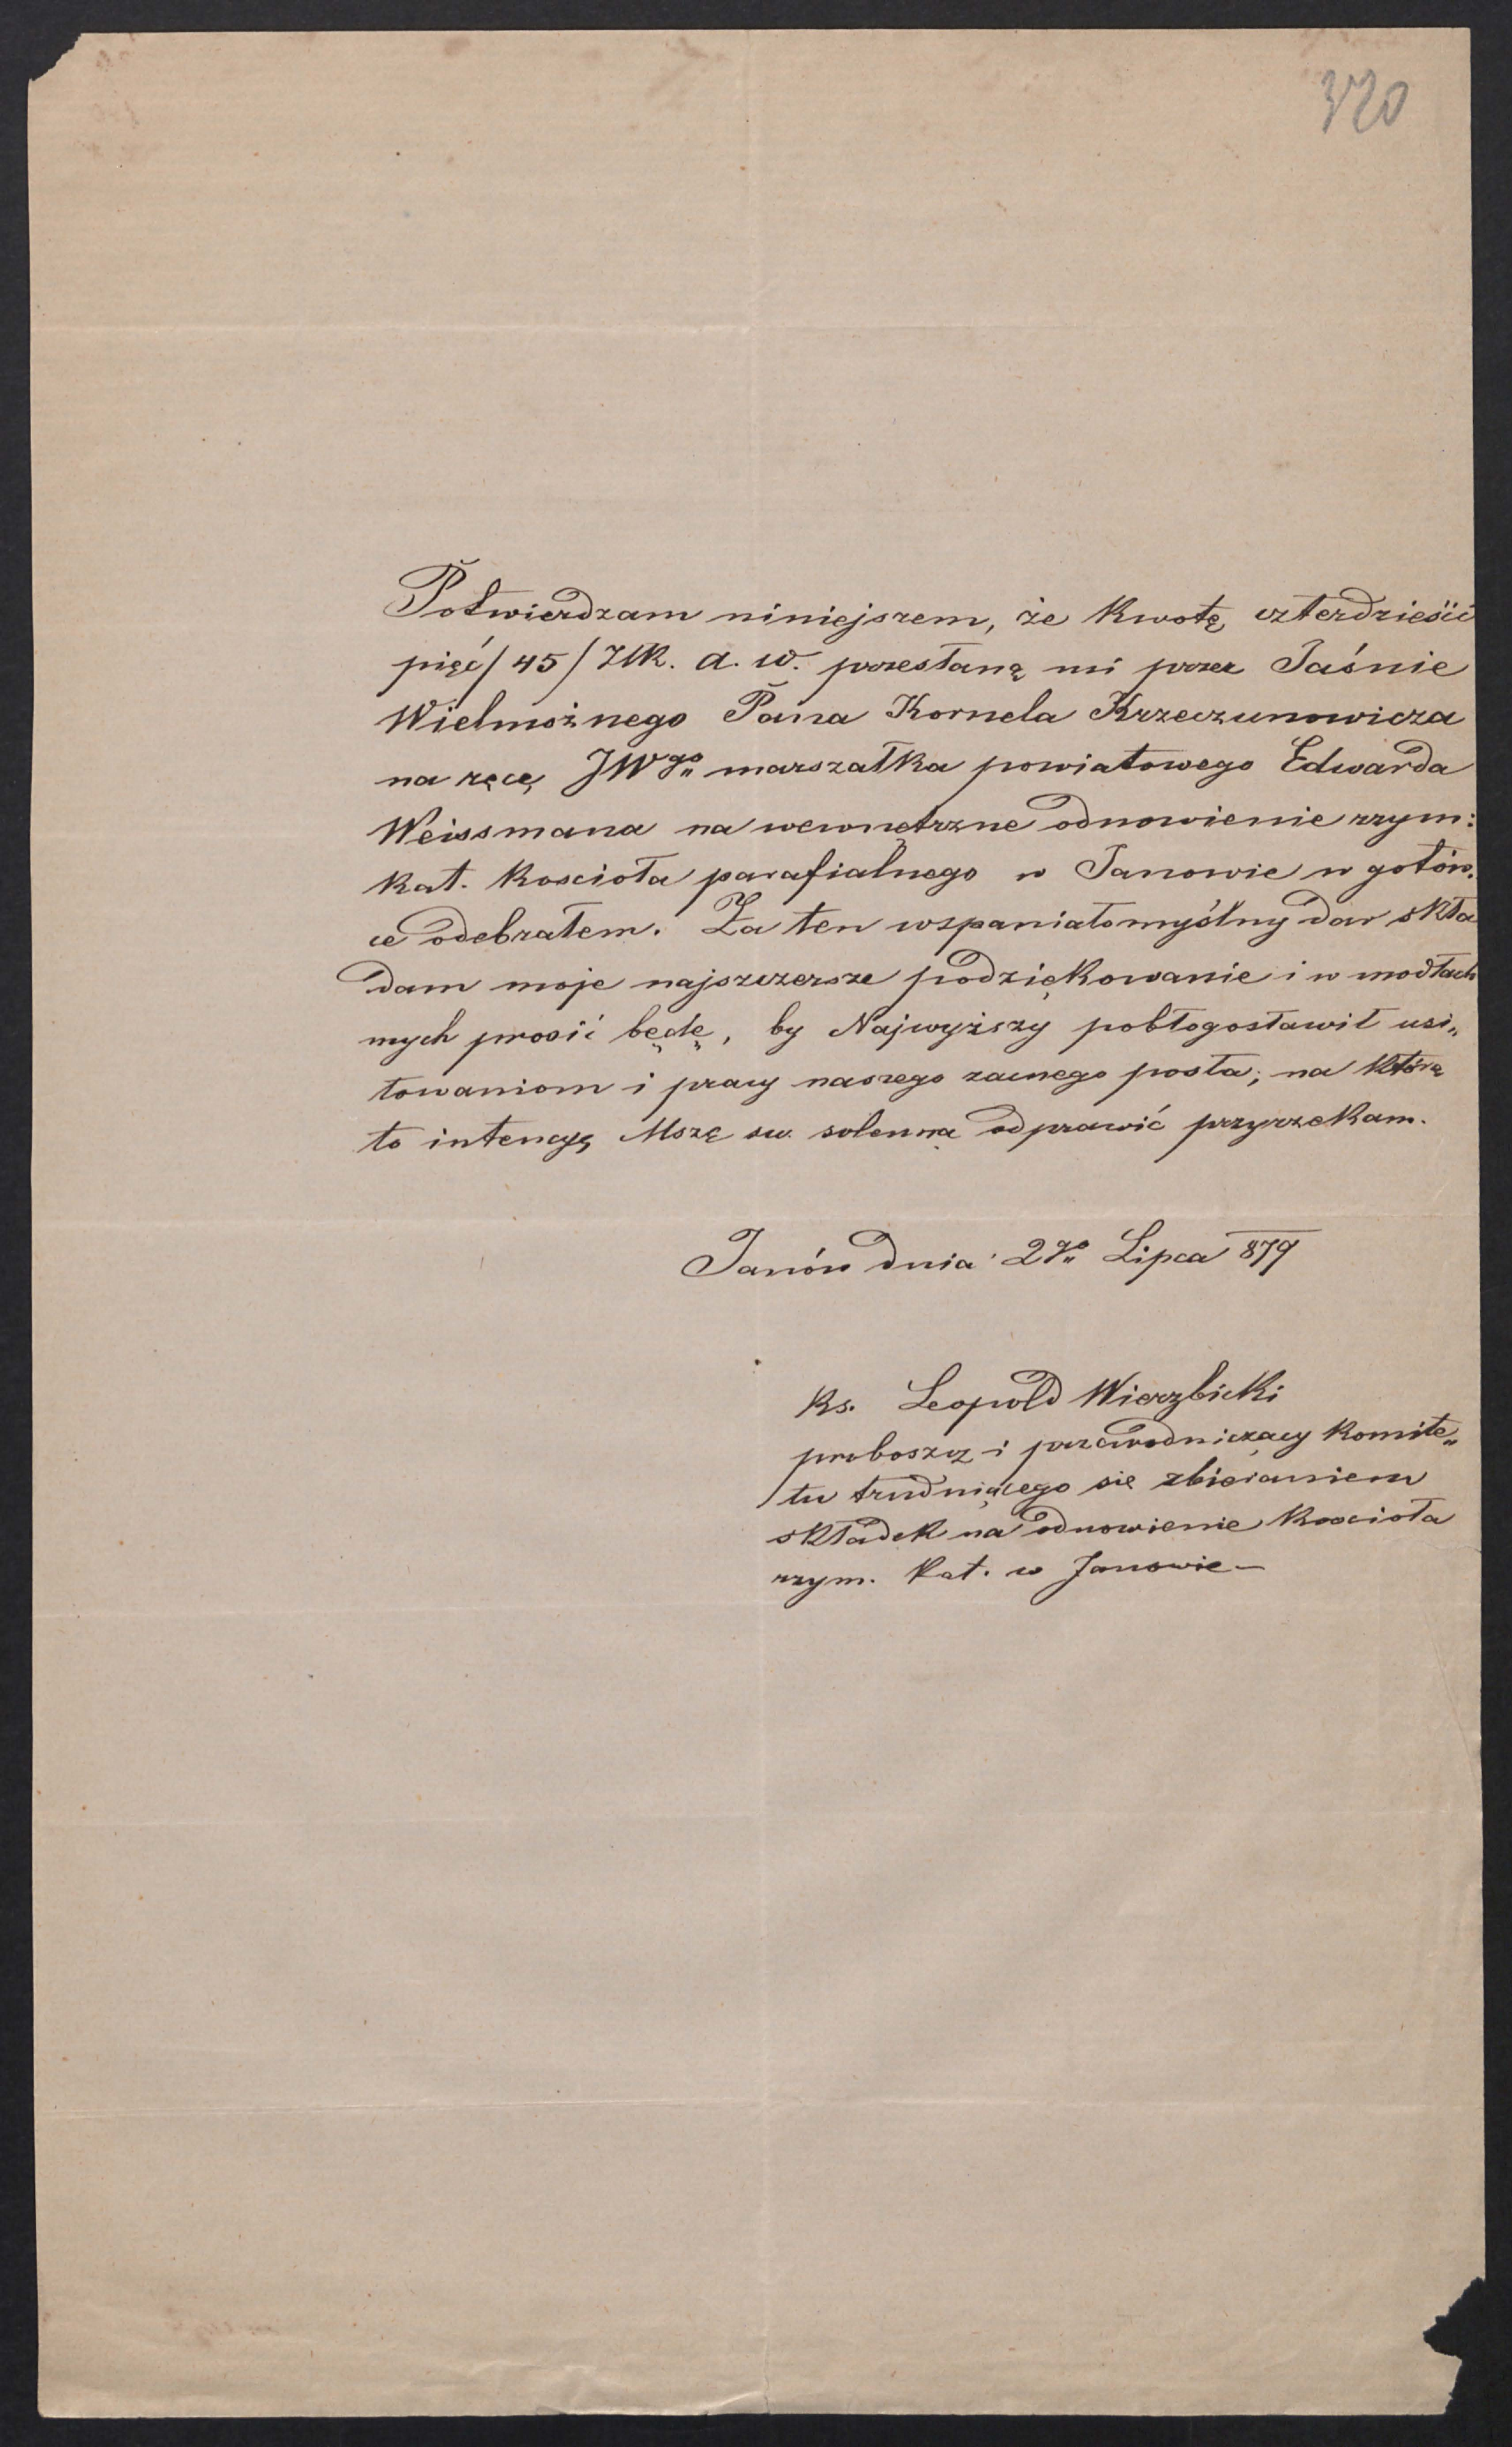 320
Potwierdzam niniejszem, że kwotę czterdzieści
pięć /45/ ZłR. a. w. przesłaną mi przez Jaśnie
Wielmożnego Pana Kornela Krzeczunowicza
na ręcę JWgo marszałka powiatowego Edwarda
Weissmana na wewnętrzne odnowienie rzym:
kat. kościoła parafialnego w Janowie w gotów,
ce odebrałem. Za ten wspaniałomyślny dar skła
dam moje najszczersze podziękowanie i w modłach
mych prosić będę, by Najwyższy pobłogosławił usi„
łowaniom i pracy naszego zacnego posła; na którą
to intencyę Mszę św. solenną odprawić przyrzekam.
Janów dnia 2go Lipca 879
ks. Leopold Wierzbicki
proboszcz i przewodniczący komite„
tu trudniącego się zbieraniem
składek na odnowienie kościoła
rzym. kat. w Janowie